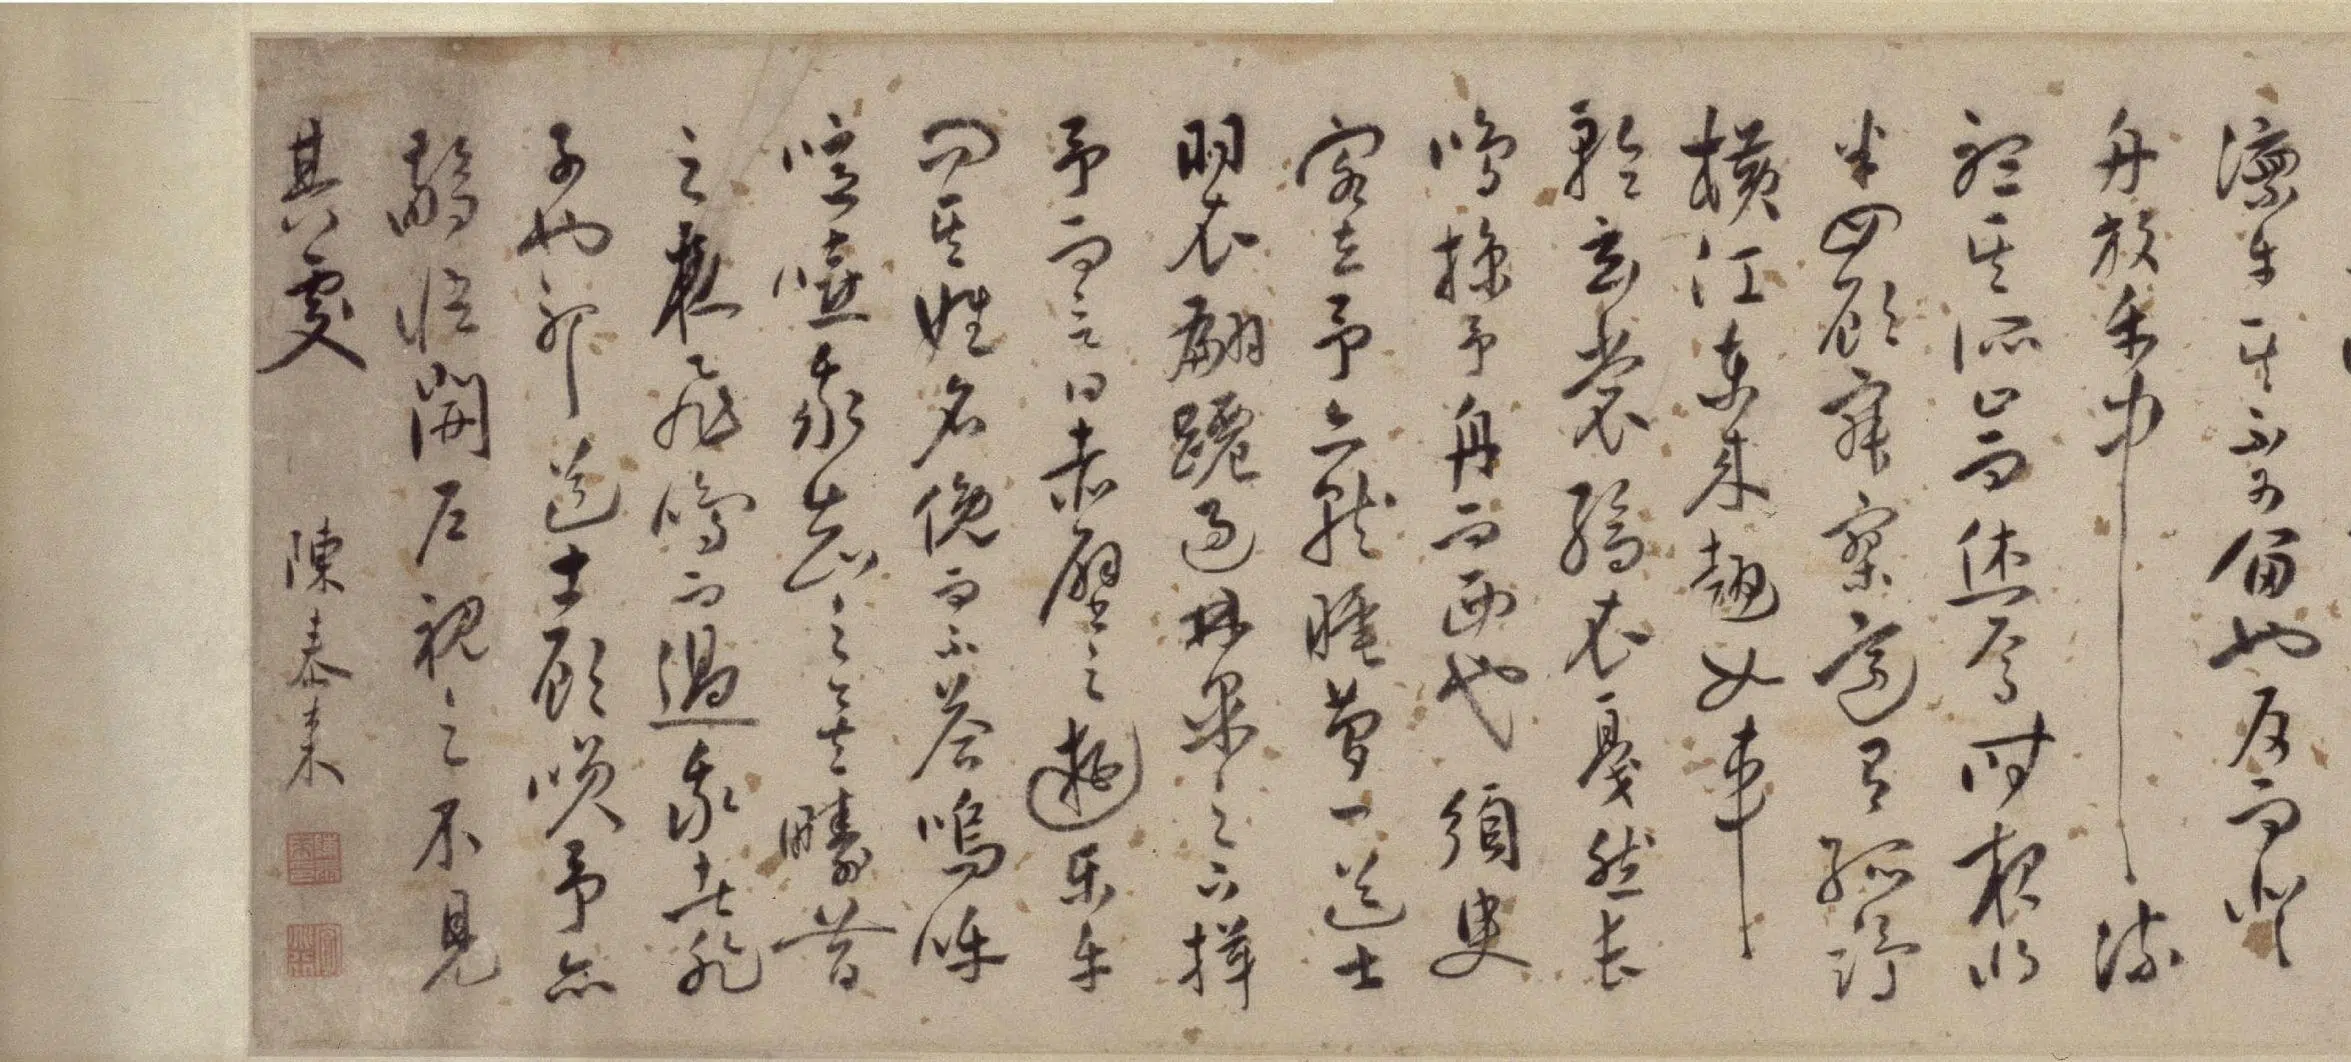 凜乎其不可留也反而登
舟放乎中流
聽其所止而休焉時夜將
半四顧寂寥適有孤鶴
橫江東來翅如車
輪玄裳縞衣戛然長
鳴掠予舟而西也須臾
客去予亦就睡夢一道士
羽衣翩躚過林皋之下揖
予而言曰赤壁之遊樂乎
問其姓名俛而不答嗚呼
噫嘻我知之矣疇昔
之夜飛鳴而過我者非
子也耶道士顧笑予亦
驚悟開戶視之不見
其處
陳泰來